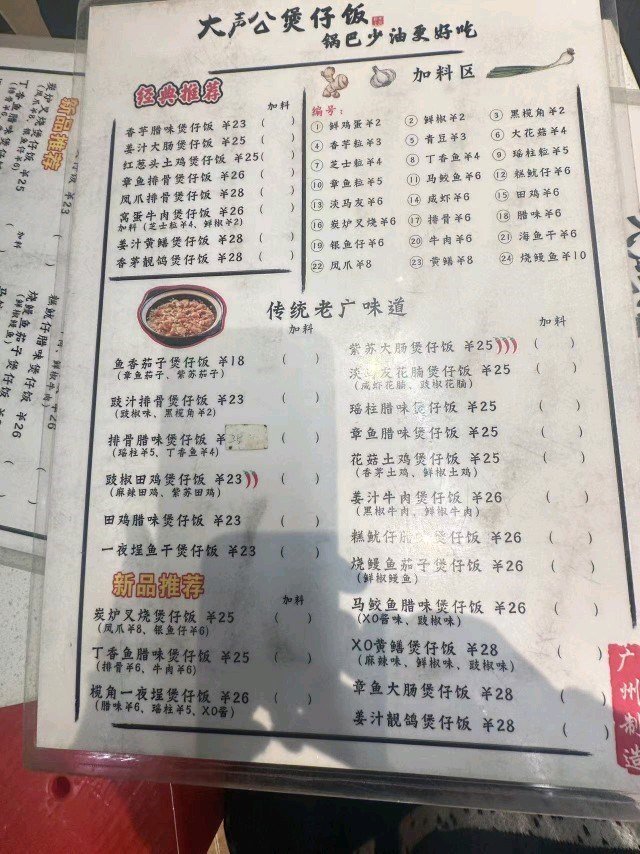 大声公煲仔饭
锅巴少油更好吃
经典推荐
加料
香芋腊味煲仔饭 ¥23 ( )
姜汁大肠煲仔饭 ¥25 ( )
红葱头土鸡煲仔饭 ¥25( )
章鱼排骨煲仔饭 ¥26 ( )
凤爪排骨煲仔饭 ¥28 ( )
窝蛋牛肉煲仔饭 ¥26 ( )
加料（芝士粒¥4、鲜椒¥2）
姜汁黄鳝煲仔饭 ¥28 ( )
香茅靓鸽煲仔饭 ¥28 ( )
加料区
编号：
① 鲜鸡蛋¥2 ② 鲜椒¥2 ③ 黑榄角¥2
④ 香芋粒¥3 ⑤ 青豆¥3 ⑥ 大花菇¥4
⑦ 芝士粒¥4 ⑧ 丁香鱼¥4 ⑨ 瑶柱粒¥5
⑩ 章鱼粒¥5 ⑪ 马鲛鱼¥6 ⑫ 糕鱿仔¥6
⑬ 淡马友¥6 ⑭ 咸虾¥6 ⑮ 田鸡¥6
⑯ 炭炉叉烧¥6 ⑰ 排骨¥6 ⑱ 腊味¥6
⑲ 银鱼仔¥6 ⑳ 牛肉¥6 ㉑ 海鱼干¥6
㉒ 凤爪¥8 ㉓ 黄鳝¥8 ㉔ 烧鳗鱼¥10
传统老广味道
加料
鱼香茄子煲仔饭 ¥18 ( )
（章鱼茄子、紫苏茄子）
豉汁排骨煲仔饭 ¥23 ( )
（豉椒味、黑榄角¥2）
排骨腊味煲仔饭 ¥ ( )
（瑶柱¥5、丁香鱼¥4）
豉椒田鸡煲仔饭 ¥23 ( )
（麻辣田鸡、紫苏田鸡）
田鸡腊味煲仔饭 ¥23 ( )
一夜埕鱼干煲仔饭 ¥23 ( )
新品推荐
加料
炭炉叉烧煲仔饭 ¥25 ( )
（凤爪¥8、银鱼仔¥6）
丁香鱼腊味煲仔饭 ¥25 ( )
（排骨¥6、牛肉¥6）
榄角一夜埕煲仔饭 ¥26 ( )
（腊味¥6、瑶柱¥5、XO酱）
加料
紫苏大肠煲仔饭 ¥25 ( )
淡马友花腩煲仔饭 ¥25 ( )
（咸虾花腩、豉椒花腩）
瑶柱腊味煲仔饭 ¥25 ( )
章鱼腊味煲仔饭 ¥25 ( )
花菇土鸡煲仔饭 ¥25 ( )
（香茅土鸡、鲜椒土鸡）
姜汁牛肉煲仔饭 ¥26 ( )
（黑椒牛肉、鲜椒牛肉）
糕鱿仔腊味煲仔饭 ¥26 ( )
烧鳗鱼茄子煲仔饭 ¥26 ( )
（鲜椒鳗鱼）
马鲛鱼腊味煲仔饭 ¥26 ( )
（XO酱味、豉椒味）
XO黄鳝煲仔饭 ¥28 ( )
（麻辣味、鲜椒味、豉椒味）
章鱼大肠煲仔饭 ¥28 ( )
姜汁靓鸽煲仔饭 ¥28 ( )
广州制造
新品推荐
炭炉叉烧煲仔饭 ¥25
（凤爪¥8、银鱼仔¥6）
丁香鱼腊味煲仔饭 ¥25
加料
糕鱿仔腊味煲仔饭 ¥26
烧鳗鱼茄子煲仔饭
（鲜椒鳗鱼）